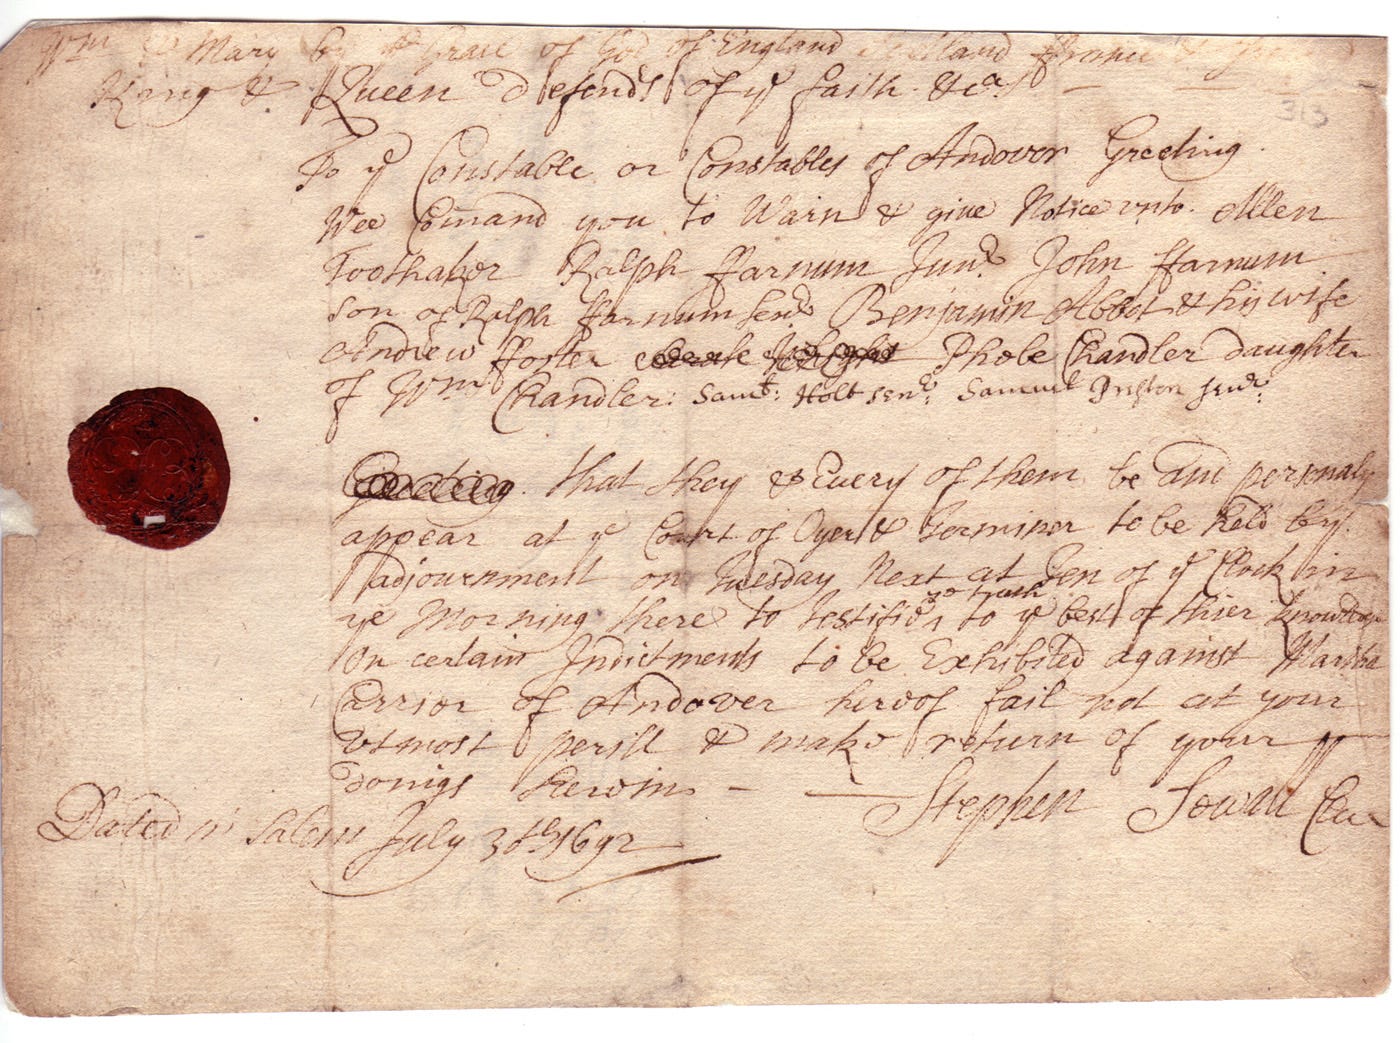 Wm & Mary by ye Grace of God of England Scotland France & Irel
King & Queen defendrs of ye faith &ca
313
To ye Constable or Constables of Andover Greeting
Wee Comand you to Warn & give Notice vnto Allen
Toothaker Ralph ffarnum Junr John ffarnum
son of Ralph ffarnum senr Benjamin Abbot & his wife
Andrew ffoster Phebe Chandler daughter
of Wm Chandler: Samll: Holt senr: Samuel Preston Junr:
Greeting that they & Every of them be and personaly
appear at ye Court of Oyer & Terminer to be held by
adjournment on Tuesday Next at Ten of ye Clock in
ye truth
ye Morning there to testifie to ye best of thier knowledge
On certain Indictments to be Exhibited against Martha
Carrier of Andover hereof fail not at your
Vtmost perill & make return of your
doings herein
Stephen Sewall Cler
Dated in Salem July 30th 1692